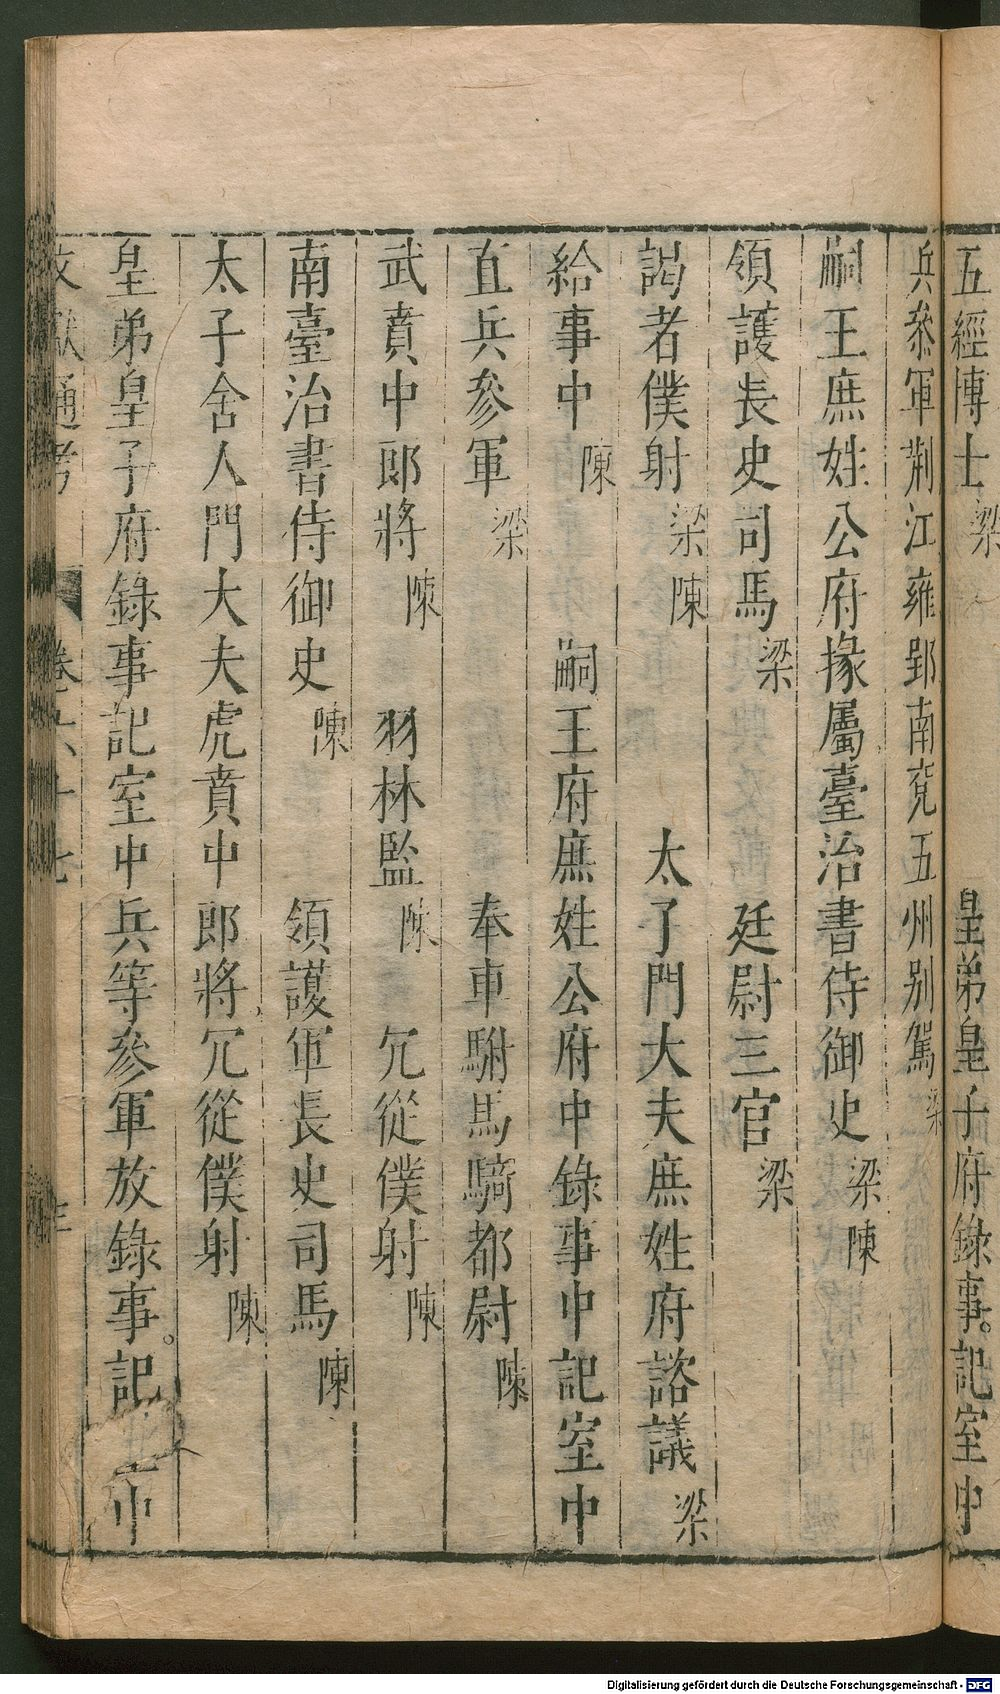 五經博士 梁 皇弟皇子府錄事。記室中
兵叅軍荆江雍郢南兖五州别駕 梁
嗣王庶姓公府掾屬臺治書侍御史 梁 陳
領護長史司馬 梁 廷尉三官 梁
謁者僕射 梁 陳 太了門大夫庶姓府諮議 梁
給事中 陳 嗣王府庶姓公府中錄事中記室中
直兵參軍 梁 奉車駙馬騎都尉 陳
武賁中郎將 陳 羽林監 陳 冗從僕射 陳
南臺治書侍御史 陳 領護軍長史司馬 陳
太子舍人門大夫虎賁中郎將冗從僕射 陳
皇弟皇子府錄事記室中兵等參軍放錄事。記中
文獻通考 卷六十七
Digitalisierung gefördert durch die Deutsche Forschungsgemeinschaft - DFG